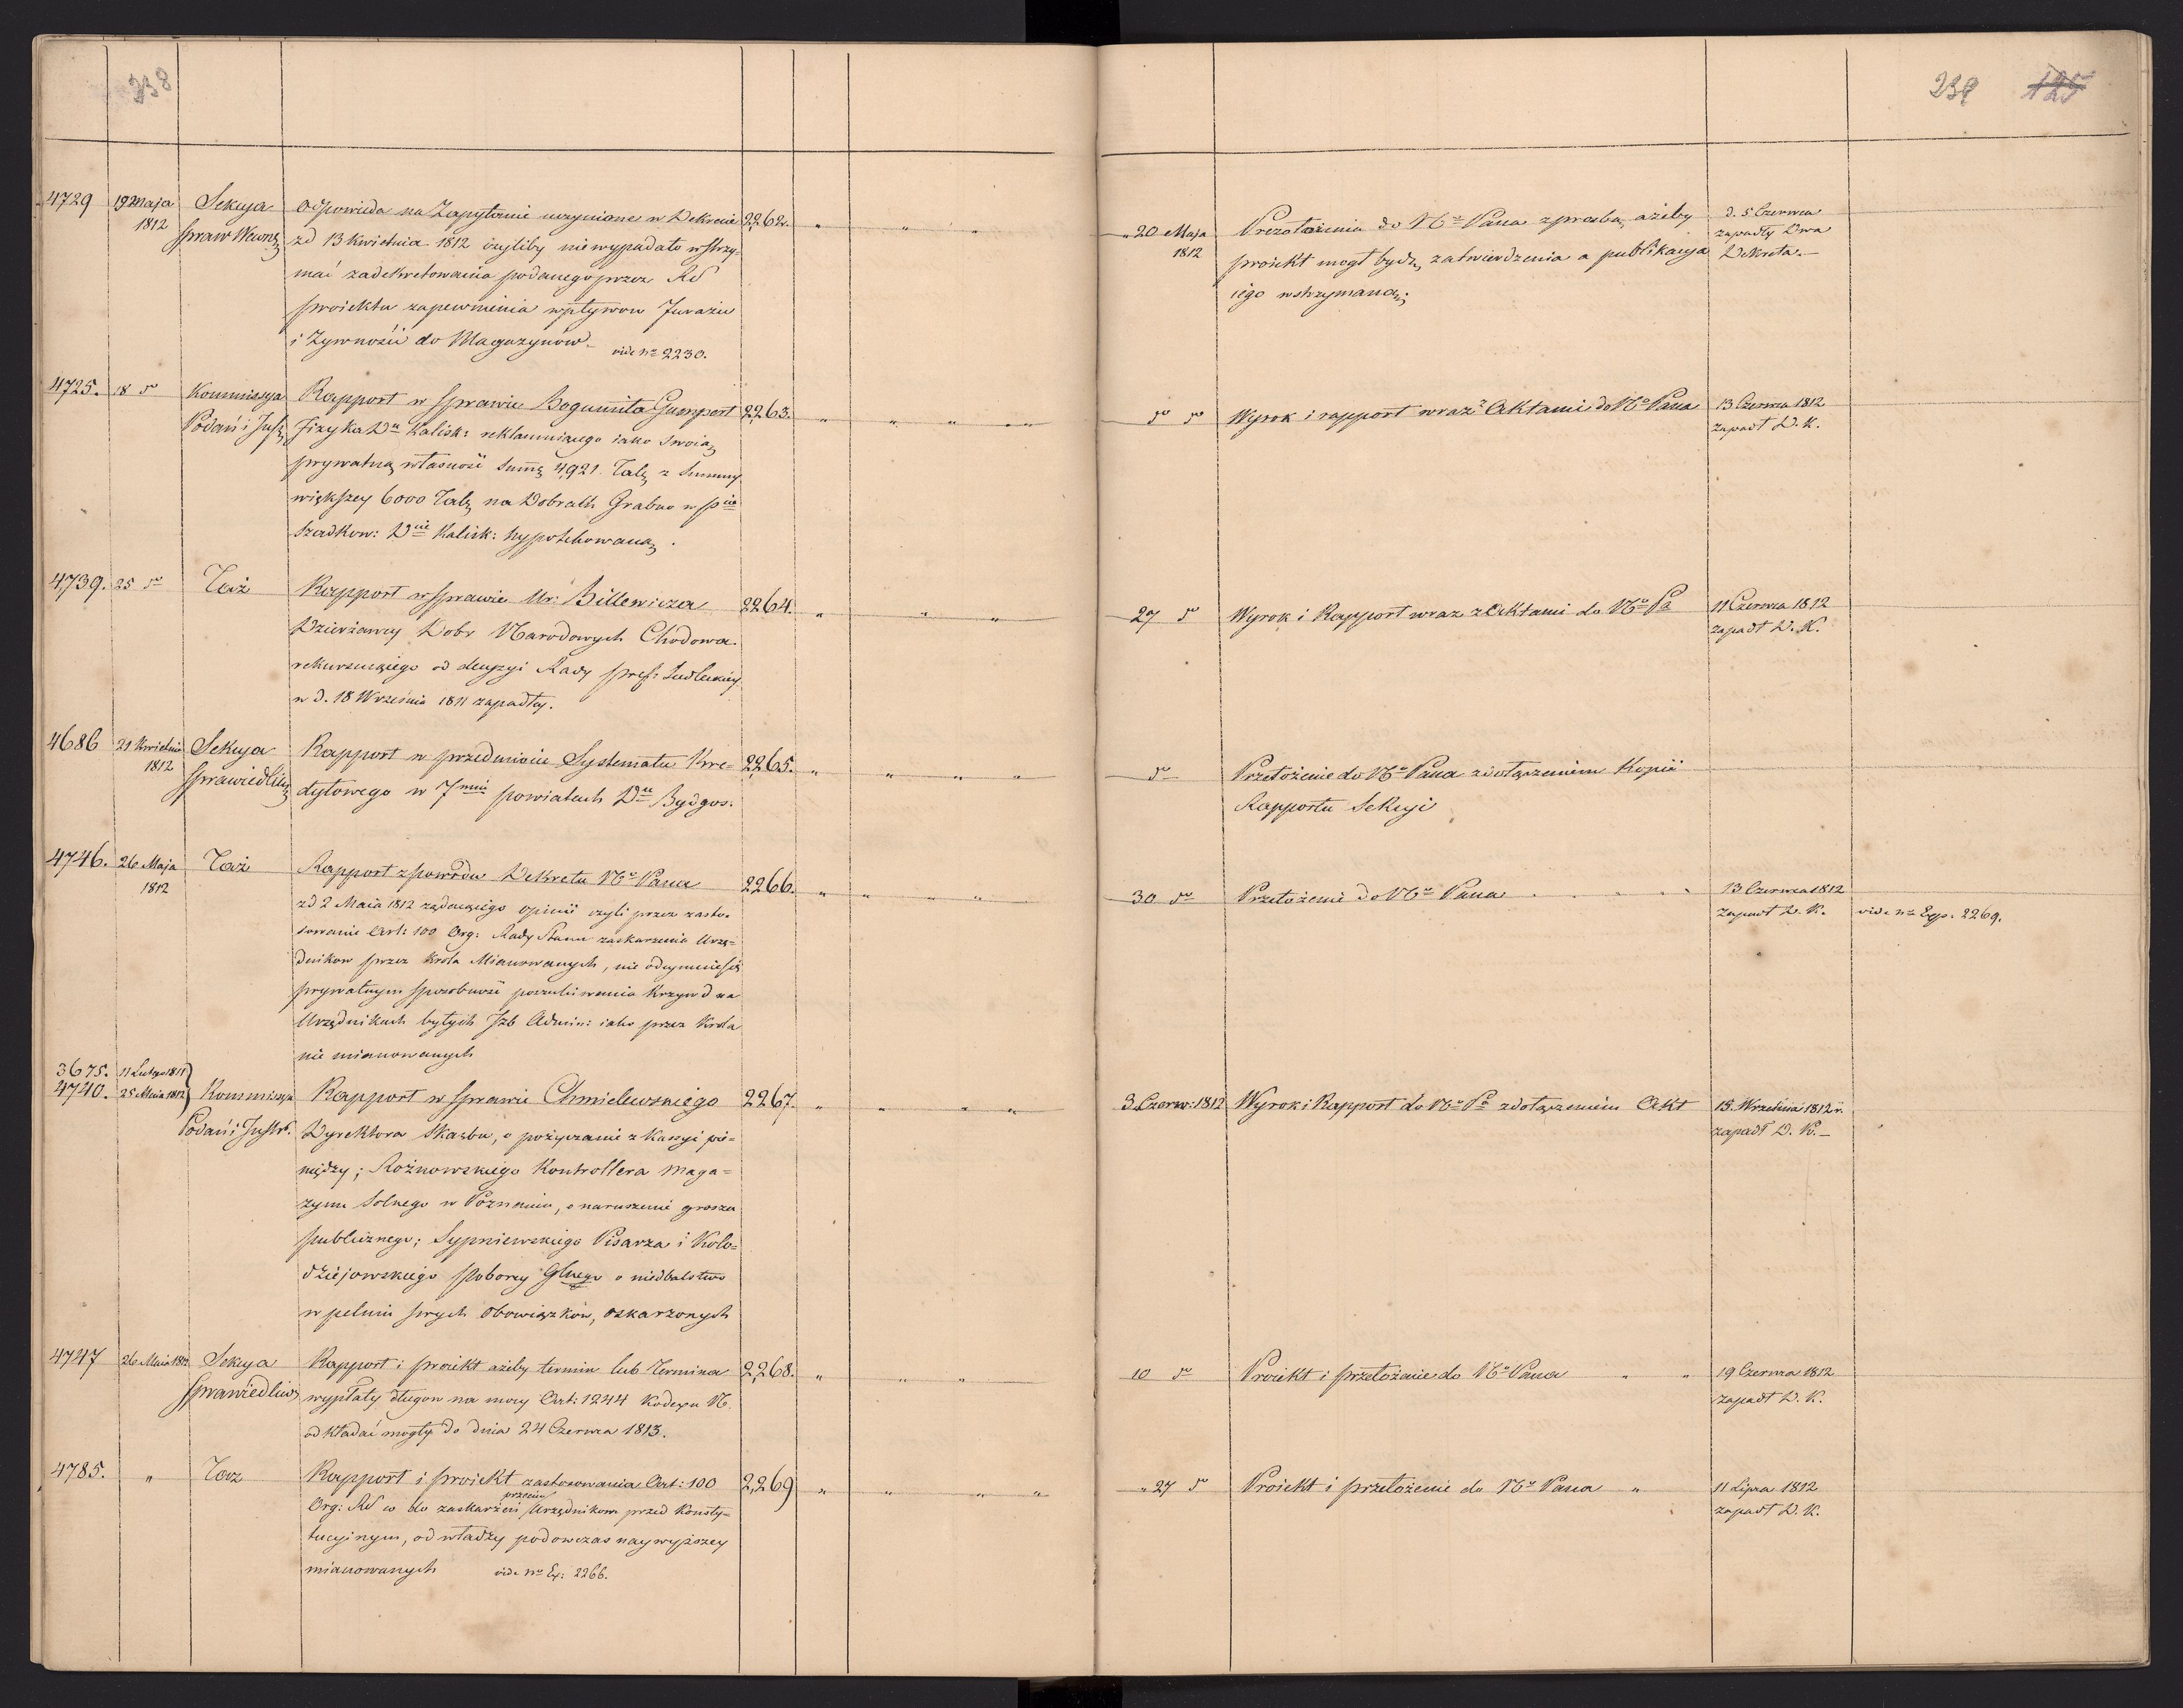 238
239 125
4729 19 Maja Sekcya Odpowieda na Zapytanie uczynione w Dekrecie 2262. " " "
1812 Spraw Wewnę zd 13 Kwietnia 1812 czyliby nie wypadało wstrzy-
mać zadekretowania podanego przez RS
proiektu zapewnienia wpływow Furażu
i Żywności do Magazynów - vide No 2230.
" 20 Maja Przełożenia do No Pana z prozbą ażeby d. 5 Czerwca
1812 proiekt mogł bydź zatwierdzenia a publikacya zapadły Dwa
iego wstrzymaną; Dekreta. -
4725. 18 do Kommissya Rapport w sprawie Bogumiła Gumpert 2263. " " " "
Podań i Jnst Fizyka Du Kalisk: reklamuiącego iako swoią
prywatną własność Summę 4,921. Tal z Summy
większey 6000 Tal na Dobrach Grabno w Pcie
Szadkow: Dcie Kalisk: hypotekowaną.
do do Wyrok i rapport wraz z Aktami do No Pana 13 Czerwca 1812
zapadł D. K.
4739. 25 do Taż Rapport w sprawie Ur: Billewicza 2264. " " "
Dzierżawcy Dobr Narodowych Chodowa
rekursuiącego od decyzyi Rady pref: Siedleckiey
w d. 18 Września 1811 zapadłey.
27 do Wyrok i Rapport wraz z Aktami do No Pa 11 Czerwca 1812
zapadł D. K.
4686 21 Kwietnia Sekcya Rapport w przedmiocie Systematu Kre- 2265. " " " "
1812 Sprawiedliw dytowego w 7miu powiatach Du Bydgos:
do Przełożenie do No Pana z dołączeniem Kopii
Rapportu Sekcyi
4746. 26 Maja Taż Rapport z powodu Dekretu No Pana 2266. " " " "
1812 zd 2 Maia 1812 żądaiącego opinii czyli przez zasto-
sowanie Art: 100 Org: Rady Stanu zaskarzenia Urzę-
dnikow przez Krola Mianowanych, nie odeymuie się
prywatnym sposobność poszukiwania Krzywd na
Urzędnikach byłych Jzb Admin: iako przez Krola
nie mianowanych
30 do Przełożenie do No Pana 13 Czerwca 1812
zapadł D. K. vide No Exp: 2269.
3675. 11 Lutego 1811
4740. 25 Maia 1812 Kommissya Rapport w sprawie Chmielewskiego 2267. " " " "
Podań i Jnstr. Dyrektora Skarbu, o pożyczanie z Kassyi pie-
niędzy; Rożnowskiego Kontrollera Maga-
zynu Solnego w Poznaniu, o naruszenie grosza
publicznego; Sypniewskiego Pisarza i Koło-
dziejowskiego Poborcy Glnego o niedbalstwo
w pełniu swych obowiązków, oskarzonych
3 Czerw: 1812 Wyrok i Rapport do No Pa z dołączeniem Akt 15. Września 1812 r.
zapadł D. K. -
4747 26 Maia 1812 Sekcya Rapport i proiekt ażeby termin lub Termina 2,268. " " "
Sprawiedliw wypłaty długow na mocy Art: 1244 Kodexu N.
odkładać mogły do dnia 24 Czerwca 1813.
10 do Proiekt i przełożenie do No Pana " " 19 Czerwca 1812
zapadł D. K.
4785. " Taz Rapport i proiekt zastosowania Art: 100 2,269 " " " "
Org: RS co do zaskarżeń przeciw Urzędnikom przed Konsty-
tucyinym, od władzy podowczas naywyższey
mianowanych vide No Ex: 2266.
" 27 do Proiekt i przełożenie do No Pana " 11 Lipca 1812
zapadł D. K.